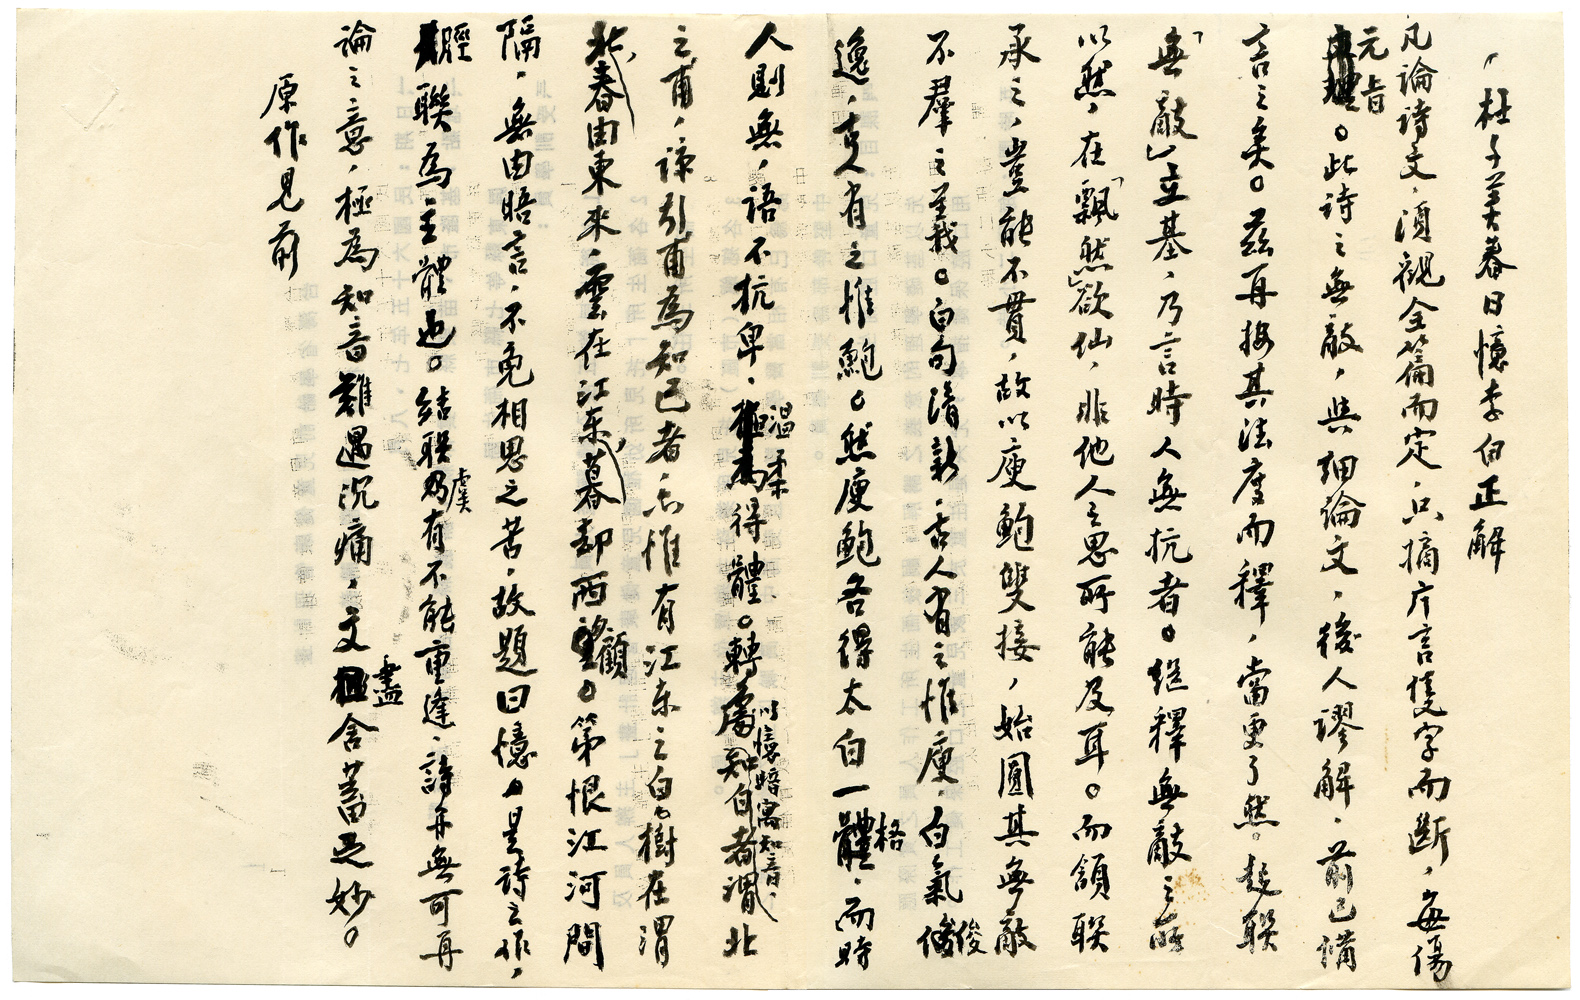 杜子美春日憶李白正解
凡論詩文，須觀全篇而定，只摘片言隻字而斷，每傷
元旨。此詩之無敵，與細論文，後人謬解，前已備
言之矣。茲再按其法度而釋，當更了然。起聯
「無敵」立基，乃言時人無抗者。繼釋無敵之所
以然，在「飄然」欲仙，非他人之思所能及耳。而頷聯
承之，豈能不貫，故以庾鮑雙接，始圓其無敵
不羣之義。白句清新，古人有之惟庾，白氣俊
逸，古人有之惟鮑。然庾鮑各得太白一格，而時
人則無，語不抗卑，溫柔得體。轉處以懷暗寓知音，北
之甫，諒引甫為知己者，亦惟有江東之白。樹在渭
北，春由東來，雲在江東，暮却西顧。第恨江河間
隔，無由晤言，不免相思之苦，故題曰憶。是詩之作，
脛聯為主體也。結聯虞有不能重逢，詩再無可再
論之意，極為知音難遇沉痛，文盡含蓄是妙。
原作見前